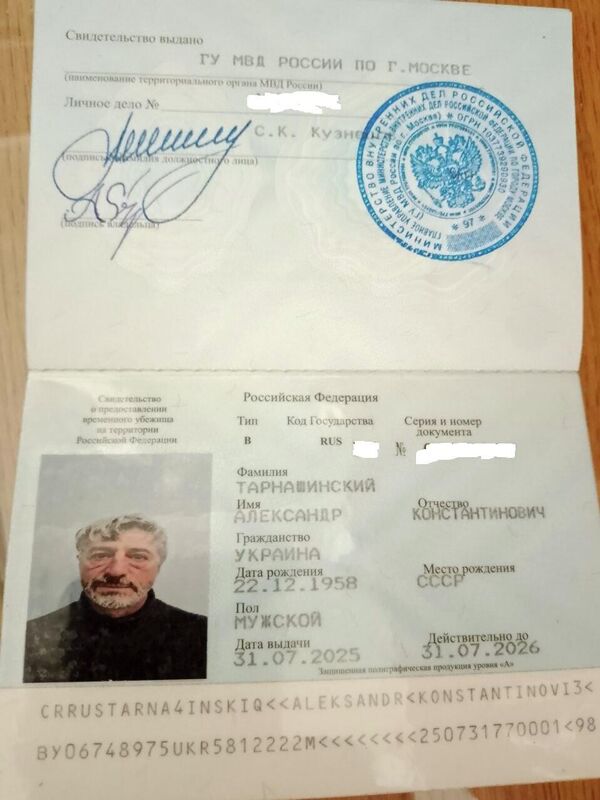 Свидетельство выдано
ГУ МВД РОССИИ ПО Г.МОСКВЕ
(наименование территориального органа МВД России)
Личное дело №
С.К. Кузне
(подпись, фамилия должностного лица)
(подпись владельца)
МИНИСТЕРСТВО ВНУТРЕННИХ ДЕЛ РОССИЙСКОЙ ФЕДЕРАЦИИ
ГЛАВНОЕ УПРАВЛЕНИЕ МИНИСТЕРСТВА ВНУТРЕННИХ ДЕЛ РОССИЙСКОЙ ФЕДЕРАЦИИ ПО ГОРОДУ МОСКВЕ
(ГУ МВД России по г. Москве)
* 97 *
Свидетельство
о предоставлении
временного убежища
на территории
Российской Федерации
Российская Федерация
Тип Код Государства Серия и номер
документа
В RUS №
Фамилия
ТАРНАШИНСКИЙ
Имя Отчество
АЛЕКСАНДР КОНСТАНТИНОВИЧ
Гражданство
УКРАИНА
Дата рождения Место рождения
22.12.1958 СССР
Пол
МУЖСКОЙ
Дата выдачи Действительно до
31.07.2025 31.07.2026
Защищенная полиграфическая продукция уровня «А»
CRRUSTARNA4INSKIQ<<ALEKSANDR<KONSTANTINOVI3<
BY06748975UKR5812222M<<<<<<<<250731770001<98